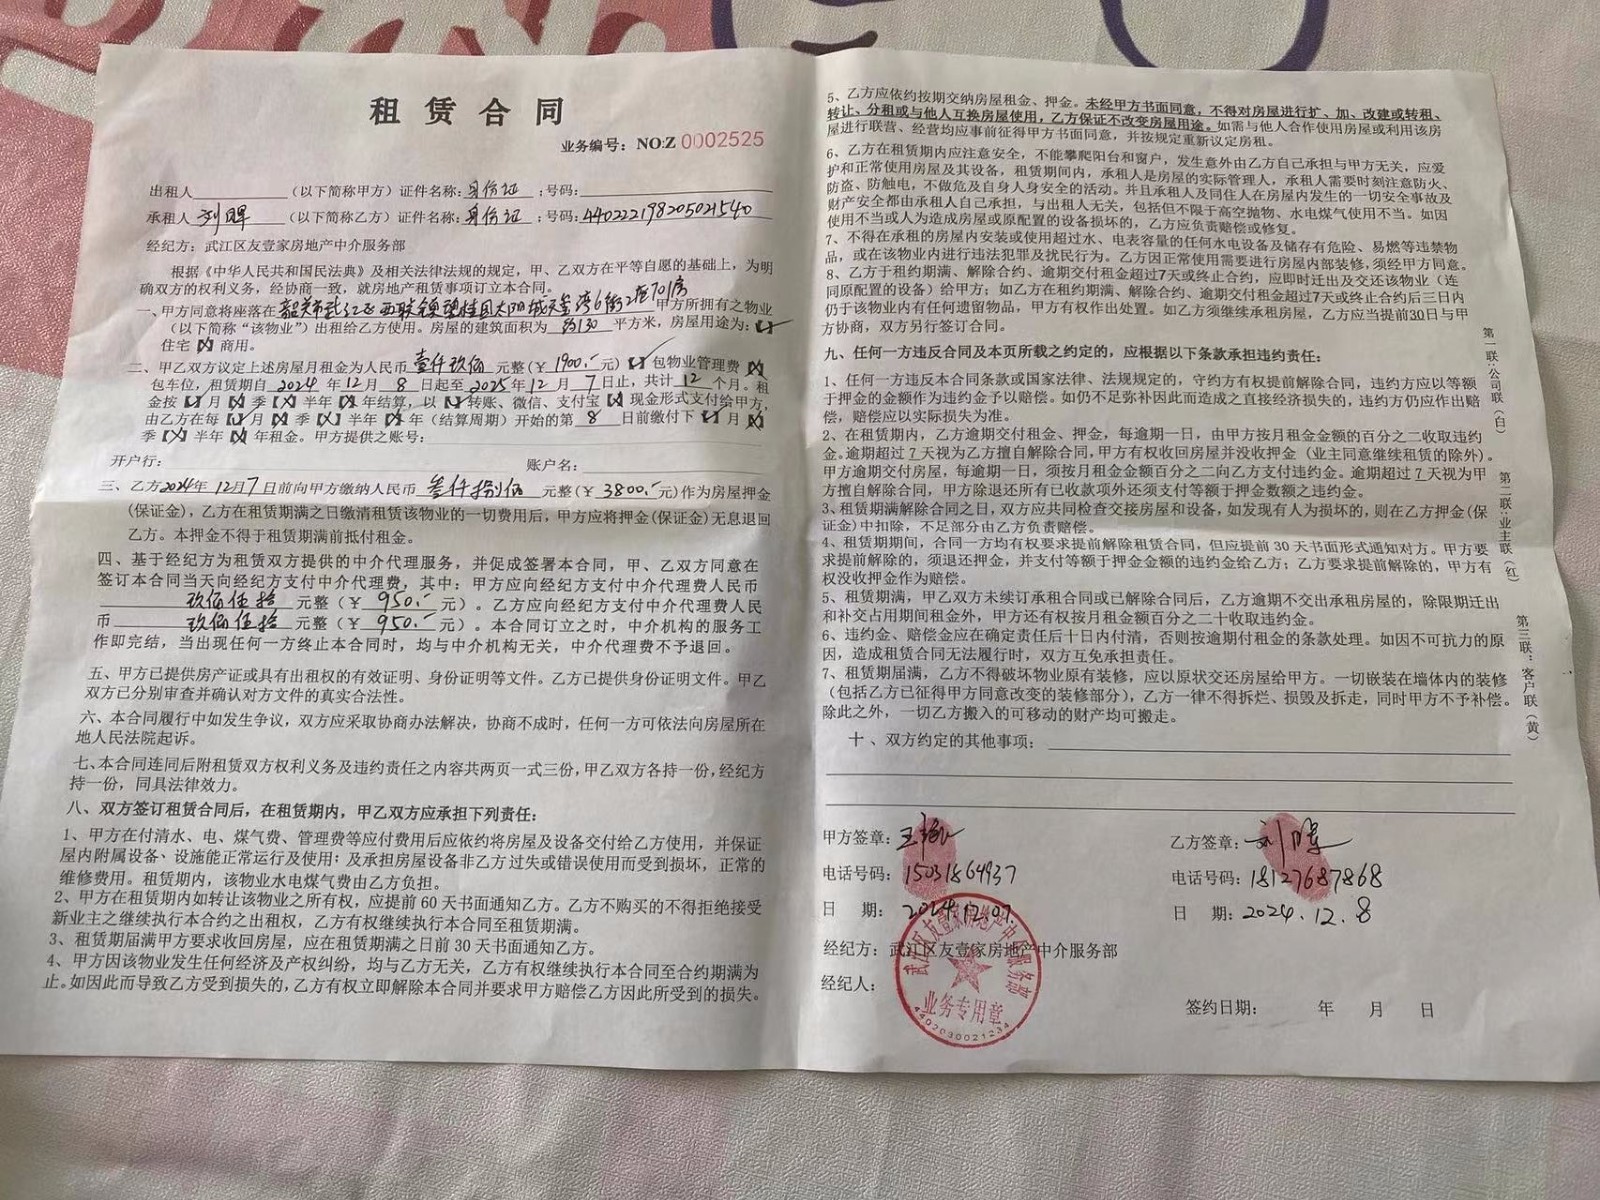 租赁合同
业务编号：NO:Z 0002525
出租人（以下简称甲方）证件名称：身份证；号码：
承租人 刘晖（以下简称乙方）证件名称：身份证；号码：440222198205021540
经纪方：武江区友壹家房地产中介服务部
根据《中华人民共和国民法典》及相关法律法规的规定，甲、乙双方在平等自愿的基础上，为明
确双方的权利义务，经协商一致，就房地产租赁事项订立本合同。
一、甲方同意将座落在 韶关市武江区西联镇碧桂园太阳城天玺湾6街2座701房 甲方所拥有之物业
（以下简称“该物业”）出租给乙方使用。房屋的建筑面积为 约130 平方米，房屋用途为：【✓】
住宅【×】商用。
二、甲乙双方议定上述房屋月租金为人民币 壹仟玖佰 元整（¥ 1900.- 元）【✓】包物业管理费【×】
包车位，租赁期自 2024 年 12 月 8 日起至 2025 年 12 月 7 日止，共计 12 个月。租
金按【✓】月【×】季【×】半年【×】年结算，以【✓】转账、微信、支付宝【×】现金形式支付给甲方，
由乙方在每【✓】月【×】季【×】半年【×】年（结算周期）开始的第 8 日前缴付下【✓】月【×】
季【×】半年【×】年租金。甲方提供之账号：
开户行： 账户名：
三、乙方 2024年 12月 7 日前向甲方缴纳人民币 叁仟捌佰 元整（¥ 3800.- 元）作为房屋押金
（保证金），乙方在租赁期满之日缴清租赁该物业的一切费用后，甲方应将押金（保证金）无息退回
乙方。本押金不得于租赁期满前抵付租金。
四、基于经纪方为租赁双方提供的中介代理服务，并促成签署本合同，甲、乙双方同意在
签订本合同当天向经纪方支付中介代理费，其中：甲方应向经纪方支付中介代理费人民币
玖佰伍拾 元整（¥ 950.- 元）。乙方应向经纪方支付中介代理费人民
币 玖佰伍拾 元整（¥ 950.- 元）。本合同订立之时，中介机构的服务工
作即完结，当出现任何一方终止本合同时，均与中介机构无关，中介代理费不予退回。
五、甲方已提供房产证或具有出租权的有效证明、身份证明等文件。乙方已提供身份证明文件。甲乙
双方已分别审查并确认对方文件的真实合法性。
六、本合同履行中如发生争议，双方应采取协商办法解决，协商不成时，任何一方可依法向房屋所在
地人民法院起诉。
七、本合同连同后附租赁双方权利义务及违约责任之内容共两页一式三份，甲乙双方各持一份，经纪方
持一份，同具法律效力。
八、双方签订租赁合同后，在租赁期内，甲乙双方应承担下列责任：
1、甲方在付清水、电、煤气费、管理费等应付费用后应依约将房屋及设备交付给乙方使用，并保证
屋内附属设备、设施能正常运行及使用；及承担房屋设备非乙方过失或错误使用而受到损坏，正常的
维修费用。租赁期内，该物业水电煤气费由乙方负担。
2、甲方在租赁期内如转让该物业之所有权，应提前60天书面通知乙方。乙方不购买的不得拒绝接受
新业主之继续执行本合约之出租权，乙方有权继续执行本合同至租赁期满。
3、租赁期届满甲方要求收回房屋，应在租赁期满之日前30天书面通知乙方。
4、甲方因该物业发生任何经济及产权纠纷，均与乙方无关，乙方有权继续执行本合同至合约期满为
止。如因此而导致乙方受到损失的，乙方有权立即解除本合同并要求甲方赔偿乙方因此所受到的损失。
5、乙方应依约按期交纳房屋租金、押金。未经甲方书面同意，不得对房屋进行扩、加、改建或转租、
转让、分租或与他人互换房屋使用，乙方保证不改变房屋用途。如需与他人合作使用房屋或利用该房
屋进行联营、经营均应事前征得甲方书面同意，并按规定重新议定房租。
6、乙方在租赁期内应注意安全，不能攀爬阳台和窗户，发生意外由乙方自己承担与甲方无关，应爱
护和正常使用房屋及其设备，租赁期间内，承租人是房屋的实际管理人，承租人需要时刻注意防火、
防盗、防触电，不做危及自身人身安全的活动。并且承租人及同住人在房屋内发生的一切安全事故及
财产安全都由承租人自己承担，与出租人无关，包括但不限于高空抛物、水电煤气使用不当。如因
使用不当或人为造成房屋或原配置的设备损坏的，乙方应负责赔偿或修复。
7、不得在承租的房屋内安装或使用超过水、电表容量的任何水电设备及储存有危险、易燃等违禁物
品，或在该物业内进行违法犯罪及扰民行为。乙方因正常使用需要进行房屋内部装修，须经甲方同意。
8、乙方于租约期满、解除合约、逾期交付租金超过7天或终止合约，应即时迁出及交还该物业（连
同原配置的设备）给甲方；如乙方在租约期满、解除合约、逾期交付租金超过7天或终止合约后三日内
仍于该物业内有任何遗留物品，甲方有权作出处置。如乙方须继续承租房屋，乙方应当提前30日与甲
方协商，双方另行签订合同。
九、任何一方违反合同及本页所载之约定的，应根据以下条款承担违约责任：
1、任何一方违反本合同条款或国家法律、法规规定的，守约方有权提前解除合同，违约方应以等额
于押金的金额作为违约金予以赔偿。如仍不足弥补因此而造成之直接经济损失的，违约方仍应作出赔
偿，赔偿应以实际损失为准。
2、在租赁期内，乙方逾期交付租金、押金，每逾期一日，由甲方按月租金金额的百分之二收取违约
金。逾期超过 7 天视为乙方擅自解除合同，甲方有权收回房屋并没收押金（业主同意继续租赁的除外）。
甲方逾期交付房屋，每逾期一日，须按月租金金额百分之二向乙方支付违约金。逾期超过 7 天视为甲
方擅自解除合同，甲方除退还所有已收款项外还须支付等额于押金数额之违约金。
3、租赁期满解除合同之日，双方应共同检查交接房屋和设备，如发现有人为损坏的，则在乙方押金（保
证金）中扣除，不足部分由乙方负责赔偿。
4、租赁期期间，合同一方均有权要求提前解除租赁合同，但应提前30天书面形式通知对方。甲方要
求提前解除的，须退还押金，并支付等额于押金金额的违约金给乙方；乙方要求提前解除的，甲方有
权没收押金作为赔偿。
5、租赁期满，甲乙双方未续订承租合同或已解除合同后，乙方逾期不交出承租房屋的，除限期迁出
和补交占用期间租金外，甲方还有权按月租金额百分之二十收取违约金。
6、违约金、赔偿金应在确定责任后十日内付清，否则按逾期付租金的条款处理。如因不可抗力的原
因，造成租赁合同无法履行时，双方互免承担责任。
7、租赁期届满，乙方不得破坏物业原有装修，应以原状交还房屋给甲方。一切嵌装在墙体内的装修
（包括乙方已征得甲方同意改变的装修部分），乙方一律不得拆烂、损毁及拆走，同时甲方不予补偿。
除此之外，一切乙方搬入的可移动的财产均可搬走。
十、双方约定的其他事项：
甲方签章：
电话号码：15031864937
日 期：2024.12.07.
经纪方：武江区友壹家房地产中介服务部
经纪人：
乙方签章：刘晖
电话号码：18127687868
日 期：2024.12.8
签约日期： 年 月 日
武江区友壹家房地产中介服务部
业务专用章
4402030021234
第一联：公司联（白）
第二联：业主联（红）
第三联：客户联（黄）